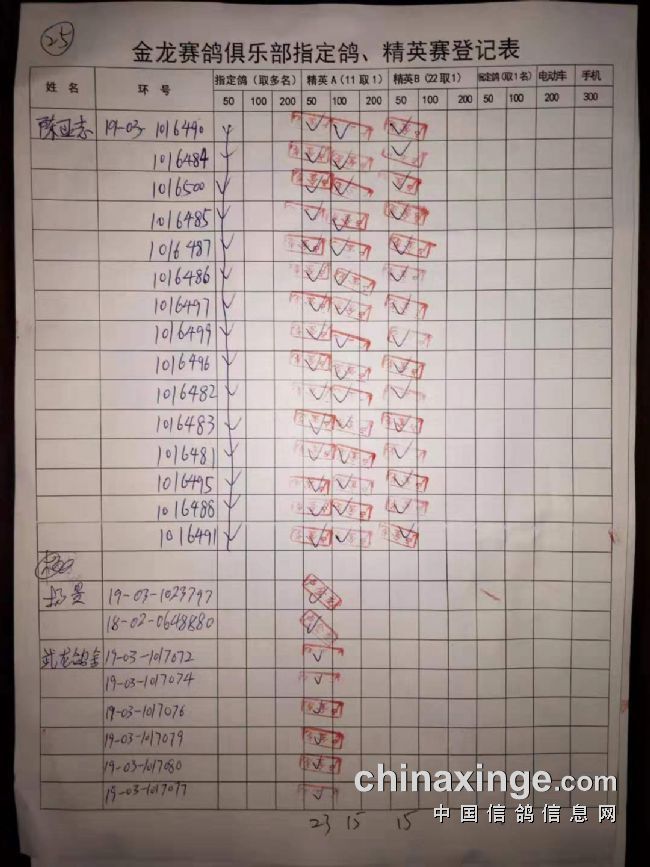 25
金龙赛鸽俱乐部指定鸽、精英赛登记表
姓名 环号 指定鸽（取多名） 精英A（11取1） 精英B（22取1） 指定鸽（取1名） 电动车 手机
50 100 200 50 100 200 50 100 200 50 100 200 300
19-03-1016490 ✓ ✓ ✓ ✓
1016484 ✓ ✓ ✓ ✓
1016500 ✓ ✓ ✓ ✓
1016485 ✓ ✓ ✓ ✓
1016487 ✓ ✓ ✓ ✓
1016486 ✓ ✓ ✓ ✓
1016497 ✓ ✓ ✓ ✓
1016499 ✓ ✓ ✓ ✓
1016496 ✓ ✓ ✓ ✓
1016482 ✓ ✓ ✓ ✓
1016483 ✓ ✓ ✓ ✓
1016481 ✓ ✓ ✓ ✓
1016495 ✓ ✓ ✓ ✓
1016488 ✓ ✓ ✓ ✓
1016491 ✓ ✓ ✓ ✓
19-03-1023797 ✓
18-02-0648880 ✓
武龙鸽舍 19-03-1017072 ✓
19-03-1017074 ✓
19-03-1017076 ✓
19-03-1017079 ✓
19-03-1017080 ✓
19-03-1017077 ✓
23 15 15
chinaxinge.com
中国信鸽信息网